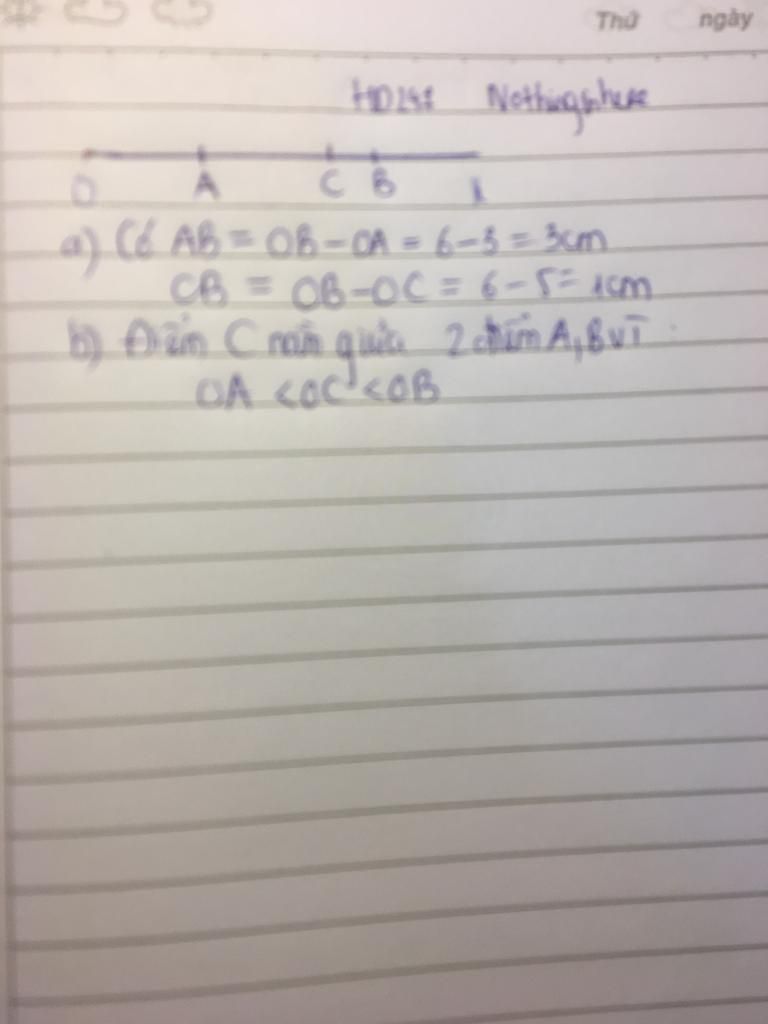 Thứ ngày
HD247 Nothingsphere
O A C B x
a) Có AB = OB - OA = 6 - 3 = 3cm
CB = OB - OC = 6 - 5 = 1cm
b) Điểm C nằm giữa 2 điểm A, B vì :
OA < OC < OB